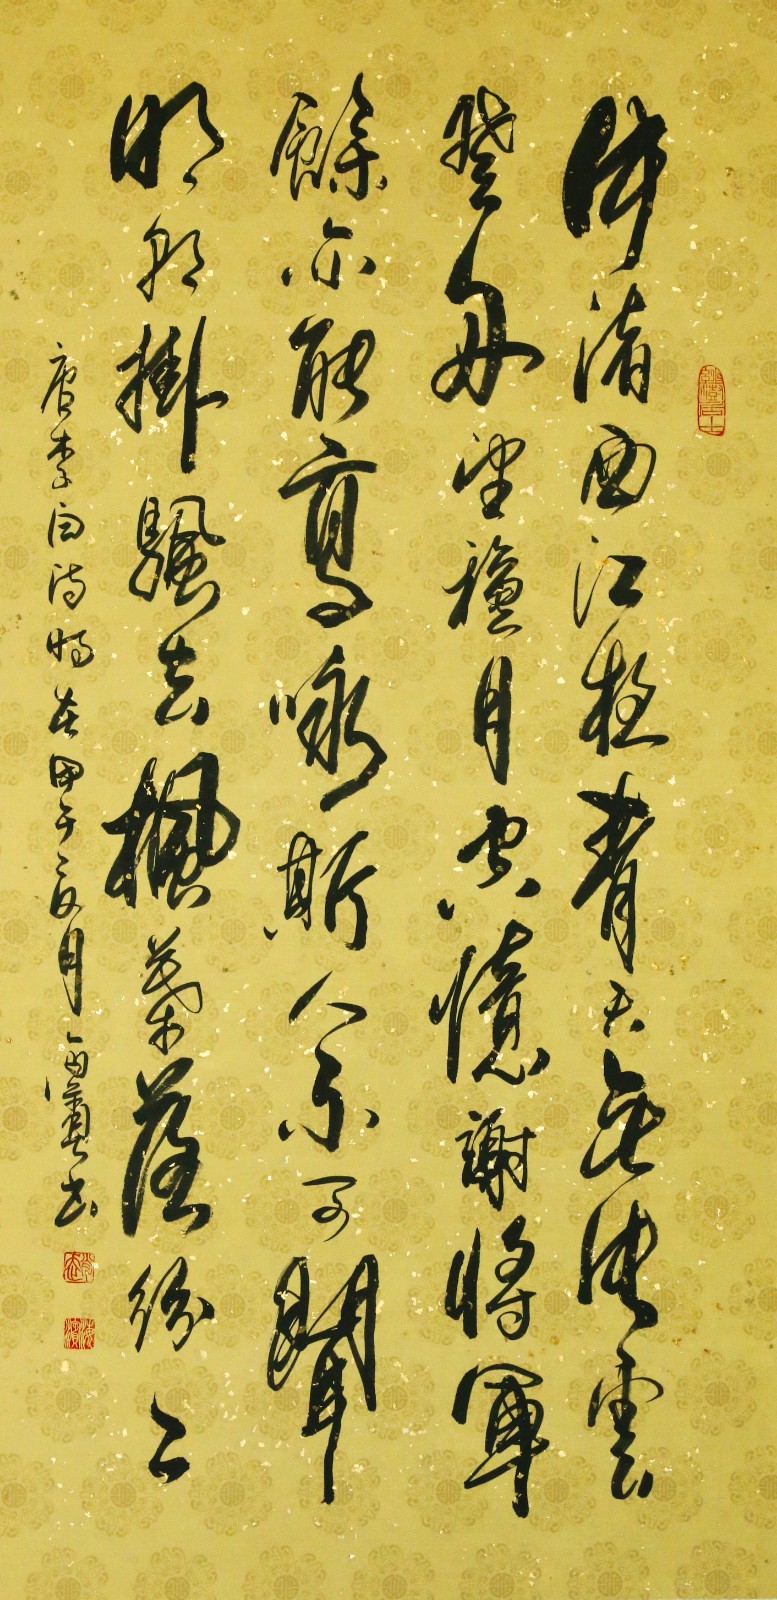 牛渚西江夜青天無片雲
登舟望穐月空憶謝將軍
餘亦能高咏斯人不可聞
明朝掛颿去楓葉落紛々
唐李白詩時在甲午夏月書